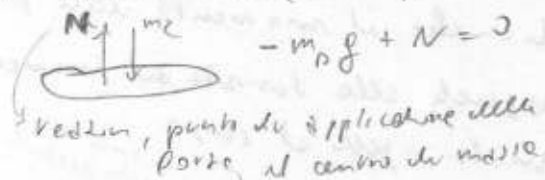 N mg
- m_D g + N = 0
reazion, punto di applicazione della
Forza, il centro di massa